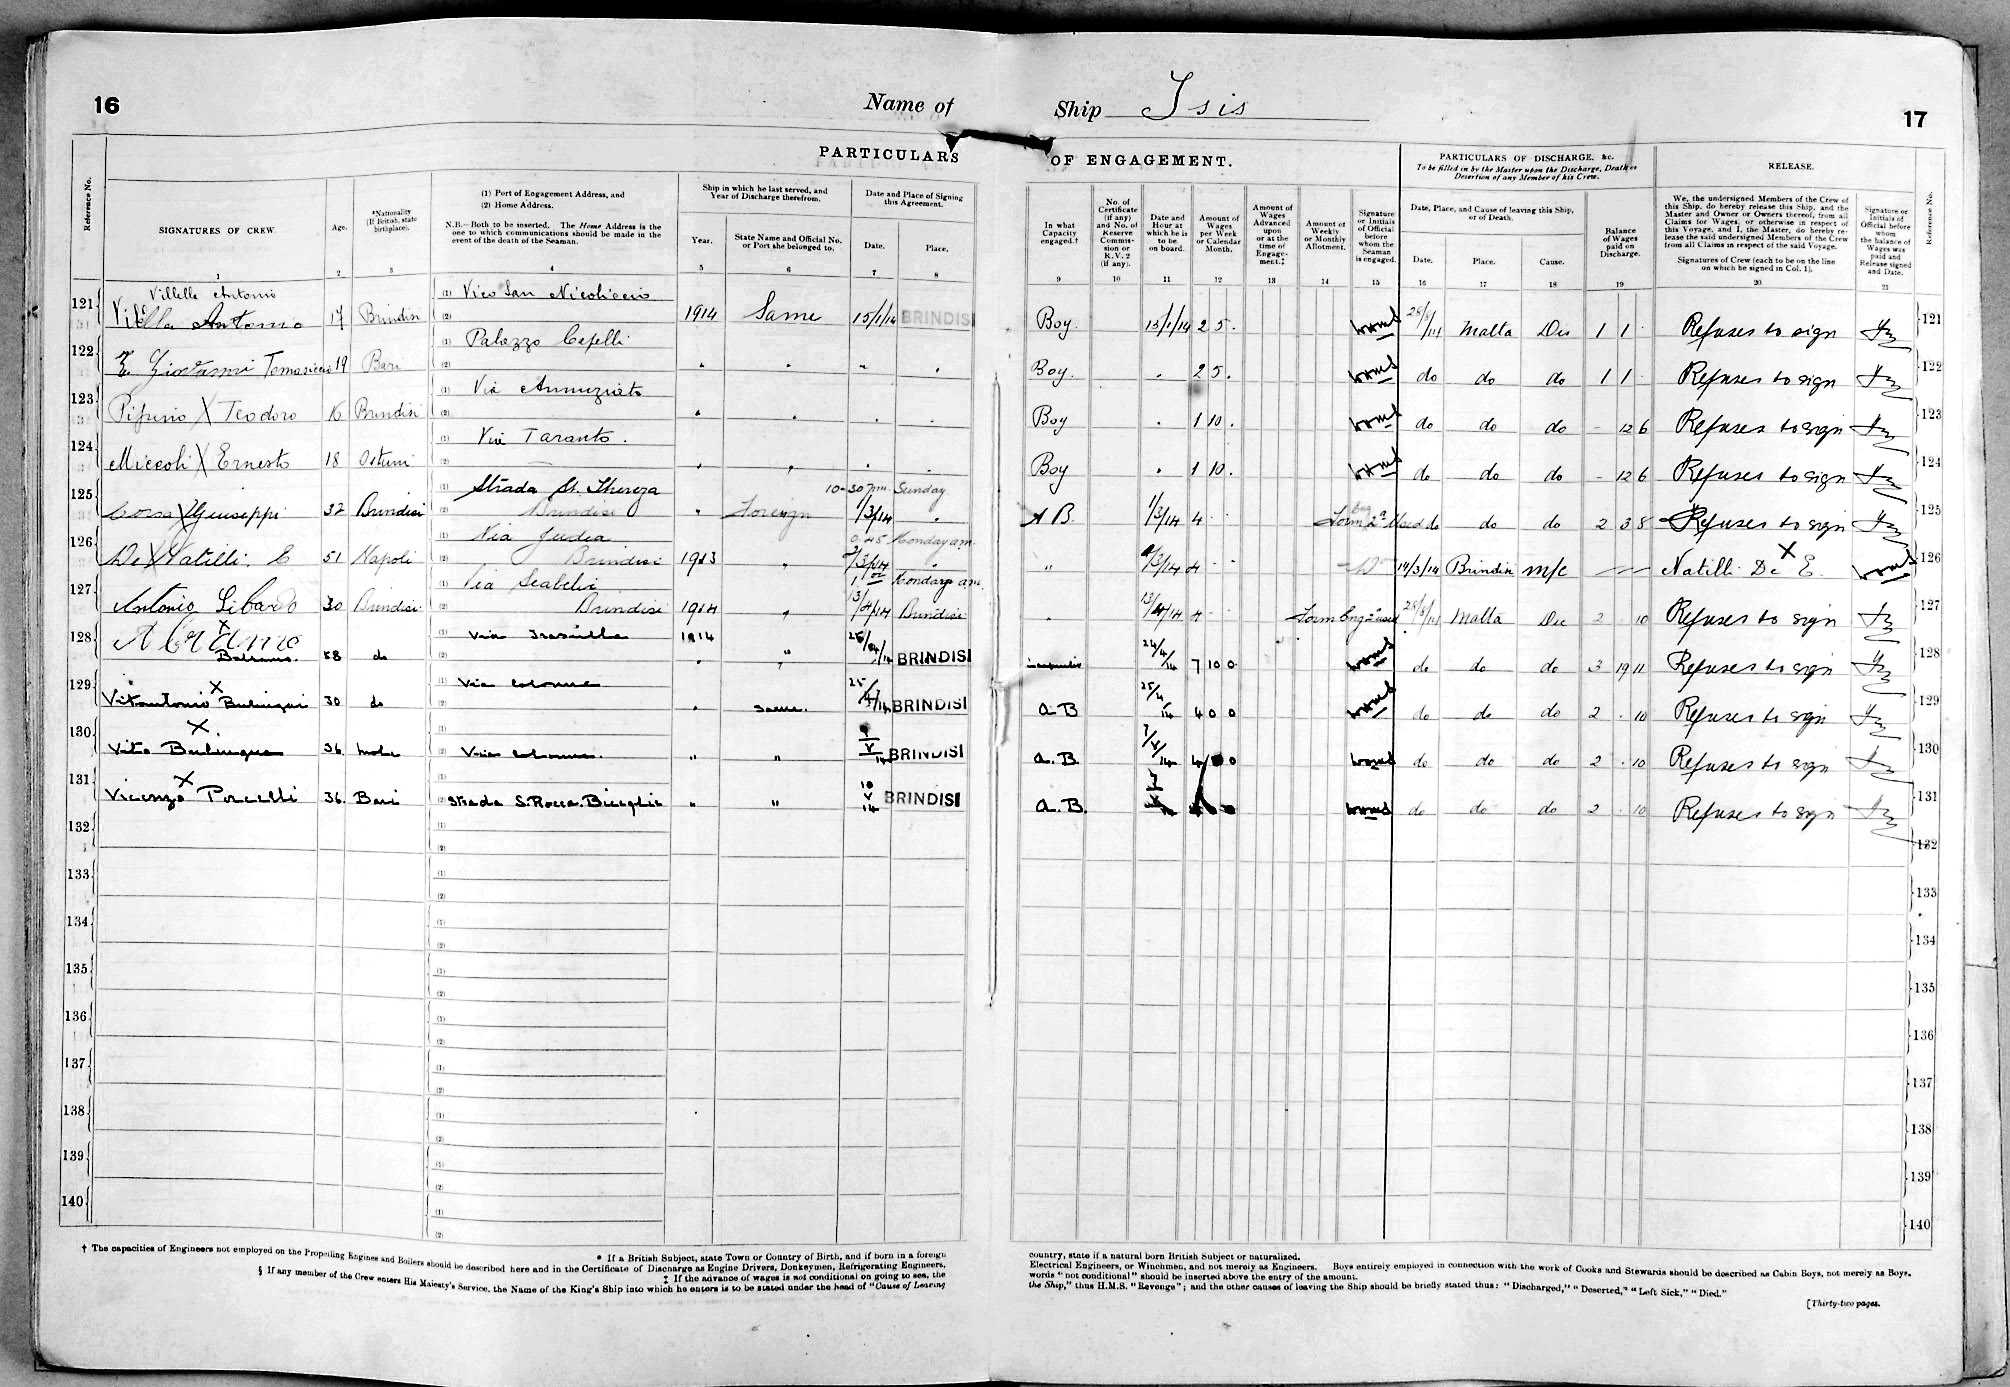 16
Name of
Ship Isis
17
PARTICULARS
OF ENGAGEMENT.
PARTICULARS OF DISCHARGE, &c.
To be filled in by the Master upon the Discharge, Death or
Desertion of any Member of his Crew.
RELEASE.
Reference No.
SIGNATURES OF CREW.
Age.
*Nationality
(If British, state
birthplace).
(1) Port of Engagement Address, and
(2) Home Address.
N.B.—Both to be inserted. The Home Address is the
one to which communications should be made in the
event of the death of the Seaman.
Ship in which he last served, and
Year of Discharge therefrom.
Year.
State Name and Official No.
or Port she belonged to.
Date and Place of Signing
this Agreement.
Date.
Place.
In what
Capacity
engaged.†
No. of
Certificate
(if any)
and No. of
Reserve
Commis-
sion or
R.V.2
(if any).
Date and
Hour at
which he is
to be
on board.
Amount of
Wages
per Week
or Calendar
Month.
Amount of
Wages
Advanced
upon
or at the
time of
Engage-
ment.‡
Amount of
Weekly
or Monthly
Allotment.
Signature
or Initials
of Official
before
whom the
Seaman
is engaged.
Date, Place, and Cause of leaving this Ship,
or of Death.
Date.
Place.
Cause.
Balance
of Wages
paid on
Discharge.
We, the undersigned Members of the Crew of
this Ship, do hereby release this Ship, and the
Master and Owner or Owners thereof, from all
Claims for Wages, or otherwise in respect of
this Voyage, and I, the Master, do hereby re-
lease the said undersigned Members of the Crew
from all Claims in respect of the said Voyage.
Signatures of Crew (each to be on the line
on which he signed in Col. 1).
Signature or
Initials of
Official before
whom
the balance of
Wages was
paid and
Release signed
and Date.
Reference No.
1 2 3 4 5 6 7 8 9 10 11 12 13 14 15 16 17 18 19 20 21
Villella Antonio
121 Antonio 17 Brindisi (1) Vico San (2) 1914 Same 15/1/14 BRINDISI Boy. 15/1/14 2 5 . Malta Dis 1 1 Refuses to sign 121
122 Giovanni 19 Bari (1) Palazzo Capelli (2) Boy. 2 5 . do do do 1 1 Refuses to sign 122
123 X Teodoro 16 Brindisi (1) Via Annunziata (2) Boy 1 10 . do do do - 12 6 Refuses to sign 123
124 Miccoli X Ernesto 18 Ostuni (1) Via Taranto. (2) Boy 1 10 . do do do - 12 6 Refuses to sign 124
10-30 pm Sunday
125 X Giuseppi 32 Brindisi (1) Strada St. Thereza (2) Brindisi 1/3/14 A B. 1/3/14 4 do do do 2 3 8 Refuses to sign 125
Monday am
126 De X Natilli. E 51 Napoli (1) Via Judea (2) Brindisi 1913 2/3/14 " 4 19/3/14 Brindisi Natilli De X E. 126
Monday a.m.
127 Antonio Libardo 30 Brindisi (1) Via (2) Brindisi 1914 13/4/14 Brindisi 13/4/14 4 Malta Dis 2 10 Refuses to sign 127
128 X 58 do (1) Via (2) 1914 " BRINDISI 24/4/14 7 10 0 do do do 3 19 11 Refuses to sign 128
129 Vitantonio X 30 do (1) Via Colonne (2) Same. 25/4/14 BRINDISI A B 25/4/14 4 0 0 do do do 2 . 10 Refuses to sign 129
130 X Vito 36 Mola (1) (2) Via Colonne. " " BRINDISI A. B. do do do 2 . 10 Refuses to sign 130
131 Vicenzo X Porcelli 36. Bari (2) Strada S. Rocca. " " 10 V 14 BRINDISI A. B. do do do 2 . 10 Refuses to sign 131
132 (1) (2) 132
133 (1) (2) 133
134 (1) (2) 134
135 (1) (2) 135
136 (1) (2) 136
137 (1) (2) 137
138 (1) (2) 138
139 (1) (2) 139
140 (1) (2) 140
† The capacities of Engineers not employed on the Propelling Engines and Boilers should be described here and in the Certificate of Discharge as Engine Drivers, Donkeymen, Refrigerating Engineers,
* If a British Subject, state Town or Country of Birth, and if born in a foreign
country, state if a natural born British Subject or naturalized.
Electrical Engineers, or Winchmen, and not merely as Engineers. Boys entirely employed in connection with the work of Cooks and Stewards should be described as Cabin Boys, not merely as Boys.
‡ If the advance of wages is not conditional on going to sea, the
words "not conditional" should be inserted above the entry of the amount.
§ If any member of the Crew enters His Majesty's Service, the Name of the King's Ship into which he enters is to be stated under the head of "Cause of Leaving
the Ship," thus H.M.S. "Revenge"; and the other causes of leaving the Ship should be briefly stated thus: "Discharged," "Deserted," "Left Sick," "Died."
[Thirty-two pages.